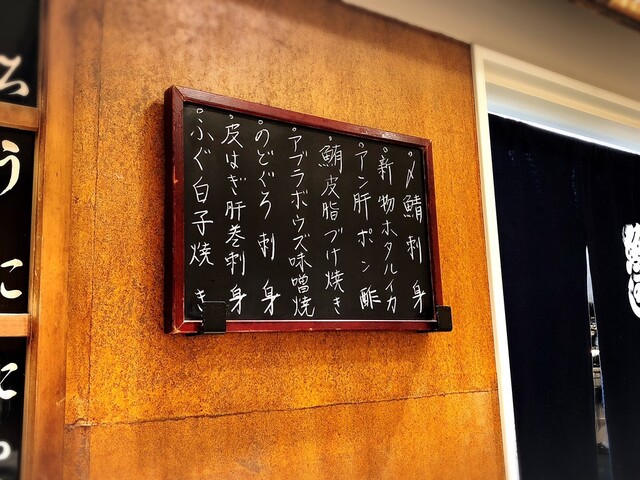 〆鯖刺身
新物ホタルイカ
アン肝ポン酢
鮪皮脂づけ焼き
アブラボウズ味噌焼
のどぐろ刺身
皮はぎ肝巻刺身
ふぐ白子焼き